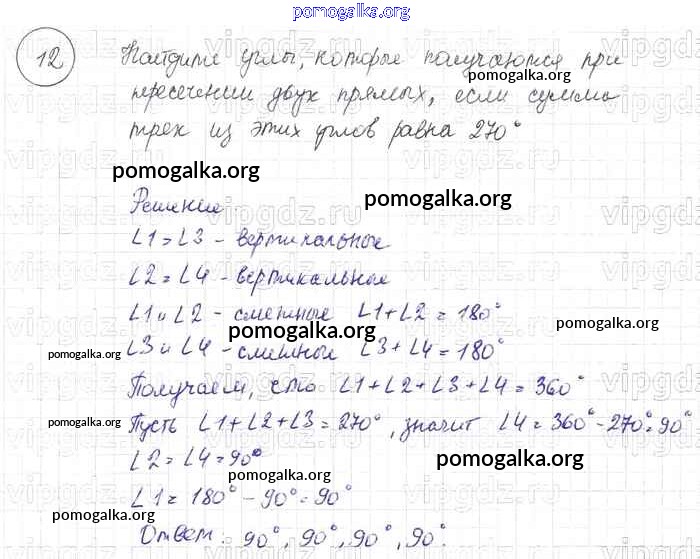 pomogalka.org
12
Найдите углы, которые получаются при
pomogalka.org
пересечении двух прямых, если сумма
трех из этих углов равна 270°
pomogalka.org
pomogalka.org
Решение
∠1=∠3 - вертикальные
∠2=∠4 - вертикальные
∠1 и ∠2 - смежные ∠1+∠2=180°
pomogalka.org
pomogalka.org
∠3 и ∠4 - смежные ∠3+∠4=180°
pomogalka.org
Получаем, что ∠1+∠2+∠3+∠4=360°
pomogalka.org
Пусть ∠1+∠2+∠3=270°, значит ∠4=360°-270°=90°
∠2=∠4=90°
pomogalka.org
pomogalka.org
∠1=180°-90°=90°
pomogalka.org
Ответ: 90°, 90°, 90°, 90°.
vipgdz.ru